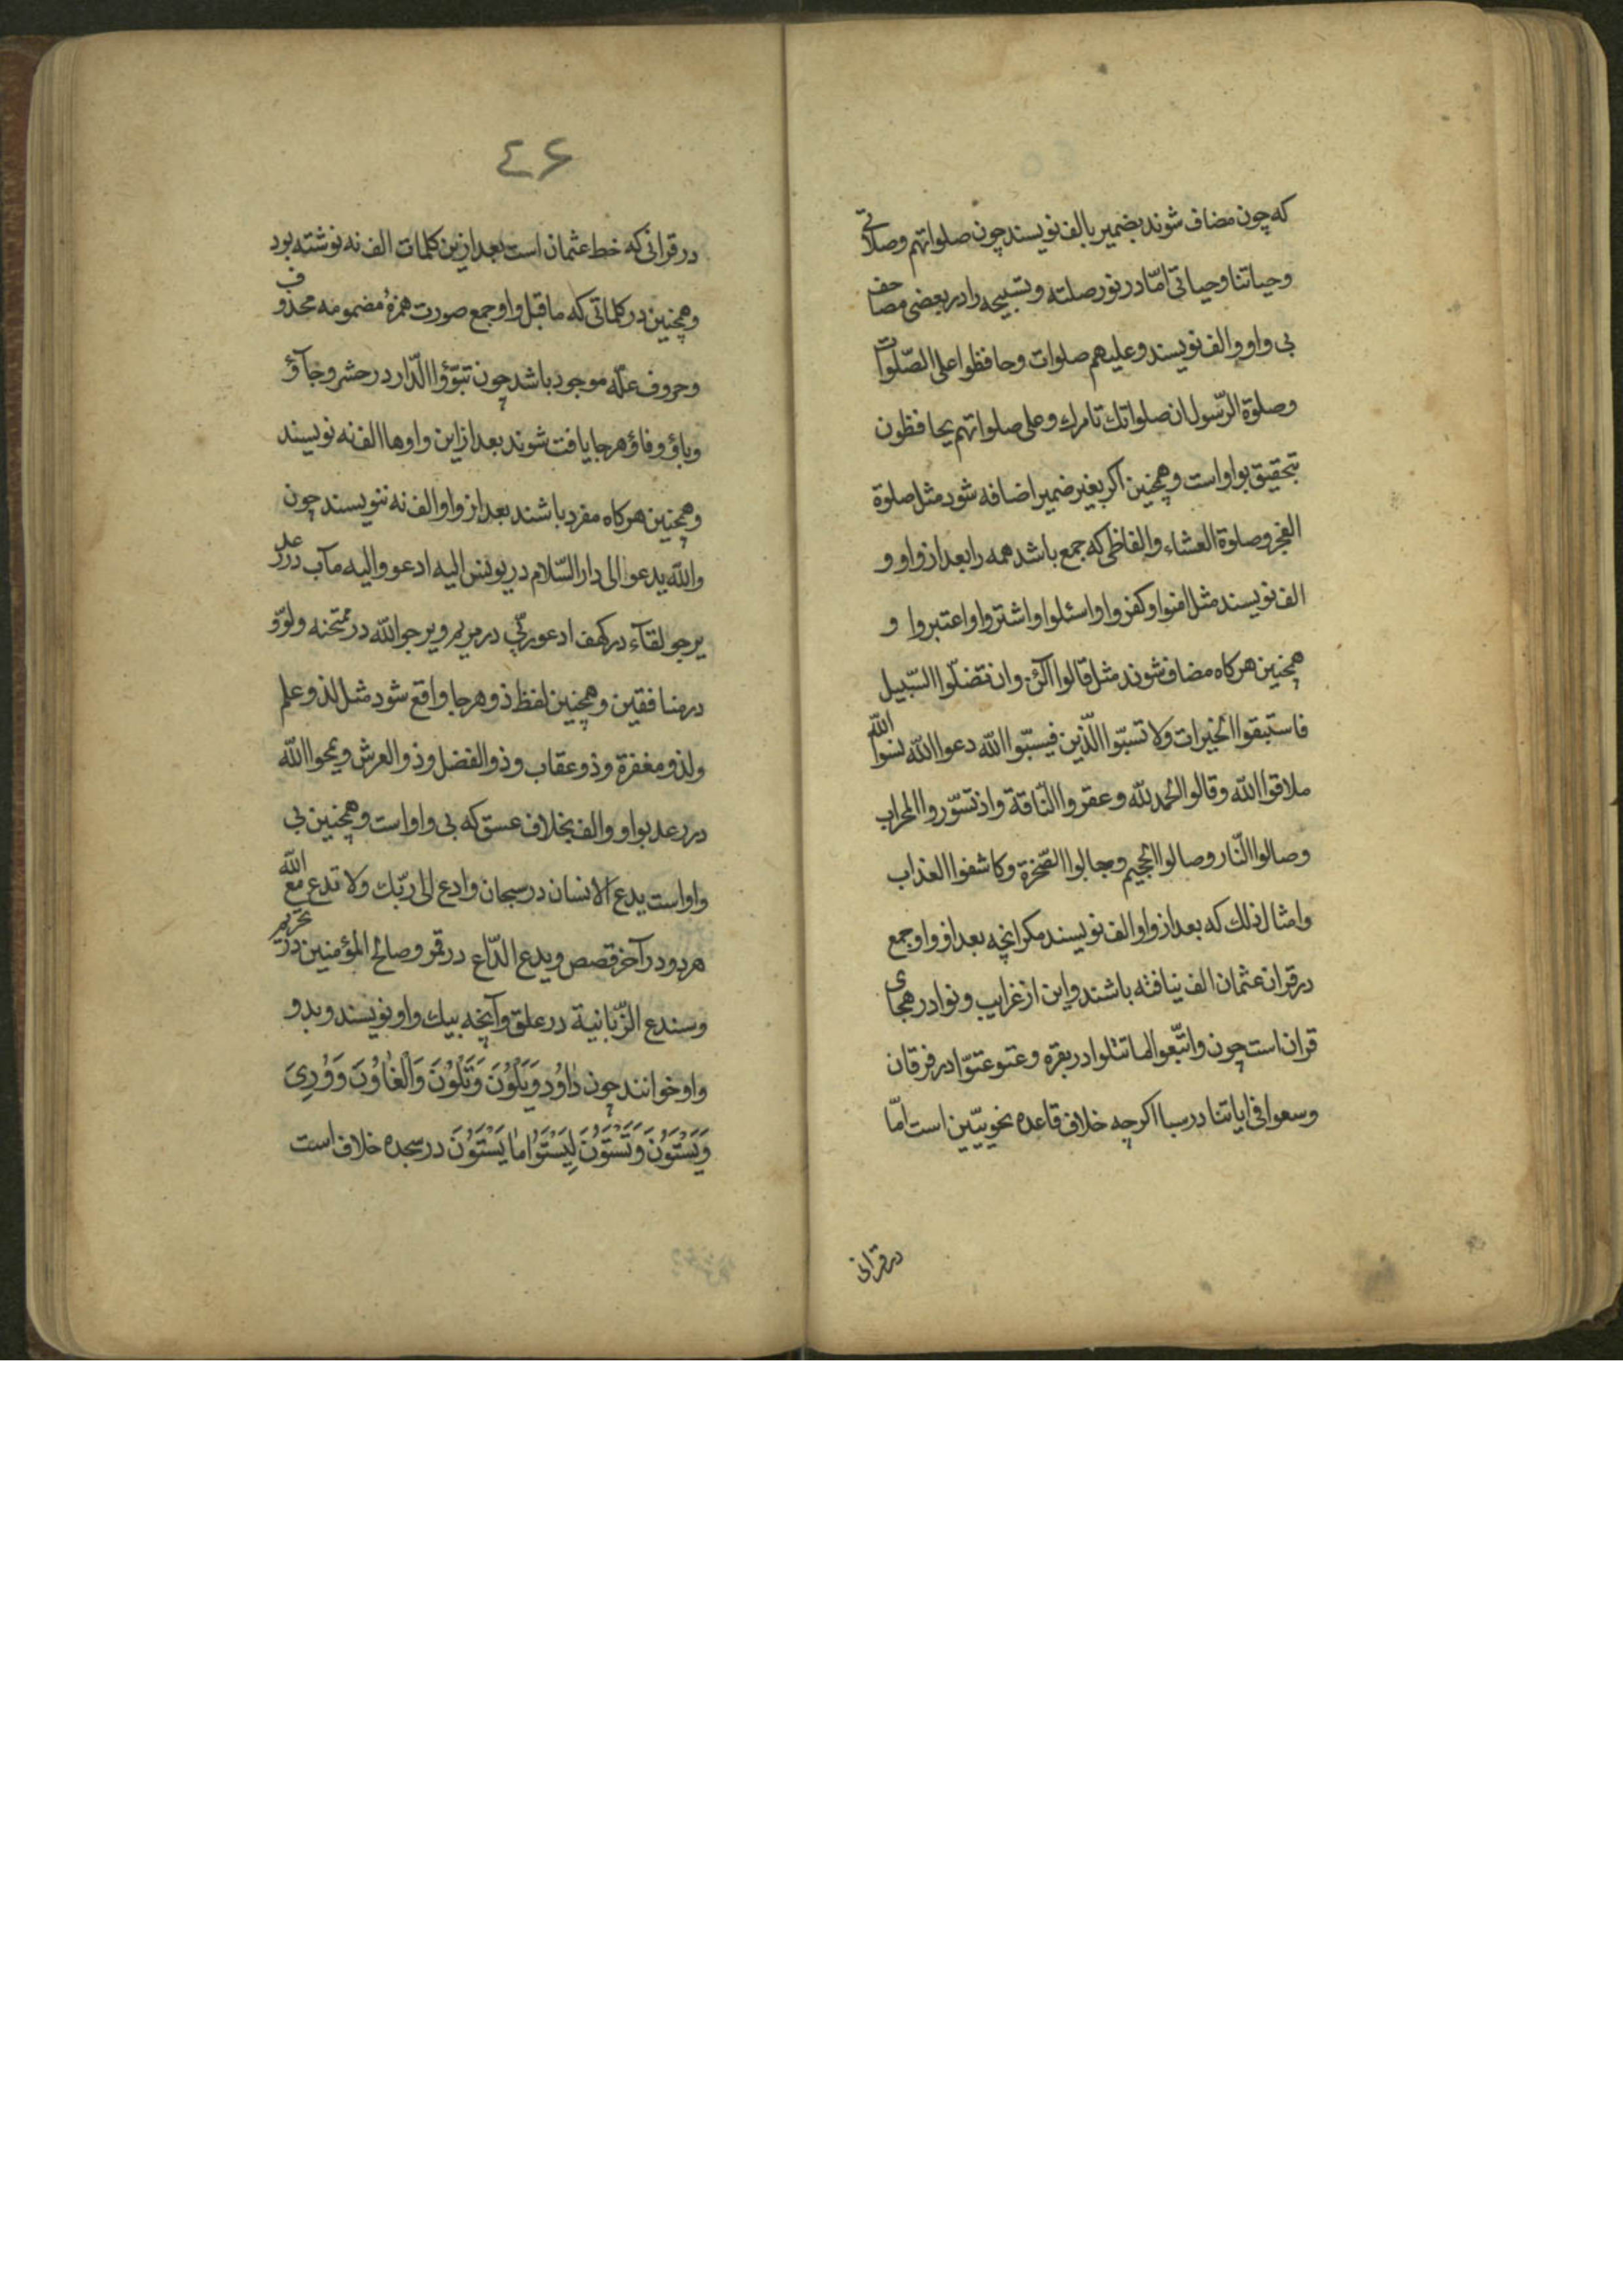 که چون مضاف شوند بضمیر بالف نویسند چون صلواتهم وصلاتی
وحیاتنا وحیاتی امّا در نور صلته وتسبیحه را در بعضی مصاحف
بی واو والف نویسند وعلیهم صلوات وحافظوا علی الصّلوات
وصلوة الرّسول ان صلواتك تامرك وعلی صلواتهم یحافظون
بتحقیق بواو است وهمچنین اکر بغیر ضمیر اضافه شود مثل صلوة
الفجر وصلوة العشاء والفاظی که جمع باشد همه را بعد از واو و
الف نویسند مثل امنوا وکفروا واسئلوا واشتروا واعتبروا و
همچنین هرکاه مضاف شوند مثل قالوا الئن وان تضلّوا السّبیل
فاستبقوا الخیرات ولا تسبّوا الّذین فیسبّوا الله دعوا الله نسوا الله
ملاقوا الله وقالوا الحمد لله وعقروا النّاقة واذ تسوّروا المحراب
وصالوا النّار وصالوا الجحیم وجابوا الصّخرة وکاشفوا العذاب
وامثال ذلك که بعد از واو الف نویسند مکر انچه بعد از واو جمع
در قران عثمان الف نیافته باشند واین از غرایب ونوادر هجای
قران است چون واتّبعوا ما تتلوا در بقره وعتو عتوّا در فرقان
وسعوا فی ایاتنا در سبا اکرچه خلاف قاعده نحویّین است امّا
در قرانی
٤۶
در قرانی که خط عثمان است بعد ازین کلمات الف نه نوشته بود
وهمچنین در کلماتی که ماقبل واو جمع صورت همزهٔ مضمومه محذوف
وحروف علّه موجود باشد چون تبوّؤا الدّار در حشر وجآؤ
وباؤ وفاؤ هرجا یافت شوند بعد از این واوها الف نه نویسند
وهمچنین هرکاه مفرد باشند بعد از واو الف نه ننویسند چون
والله یدعو الی دار السّلام در یونس الیه ادعو والیه مآب در رعد
یرجو لقآء در کهف ادعو ربّی در مریم ویرجو الله در ممتحنه ولوّو
در منافقین وهمچنین لفظ ذو هرجا واقع شود مثل لذو علم
ولذو مغفرة وذو عقاب وذو الفضل وذو العرش ویمحوا الله
در رعد بواو والف بخلاف عسق که بی واو است وهمچنین بی
واو است یدع الانسان در سبحان وادع الی ربّك ولا تدع مع الله
هر دو در آخر قصص ویدع الدّاع در قمر وصالح المؤمنین در تحریم
وسندع الزّبانیة در علق وآنچه بیك واو نویسند وبدو
واو خوانند چون دٰاوُد وَیَلْوُنَ وَتَلْوُنَ وَالْغٰاوُنَ وَوُرِیَ
وَیَسْتَوُنَ وَتَسْتَوُنَ لِیَسْتَوُا امٰا یَسْتَوُنَ در سجده خلاف است